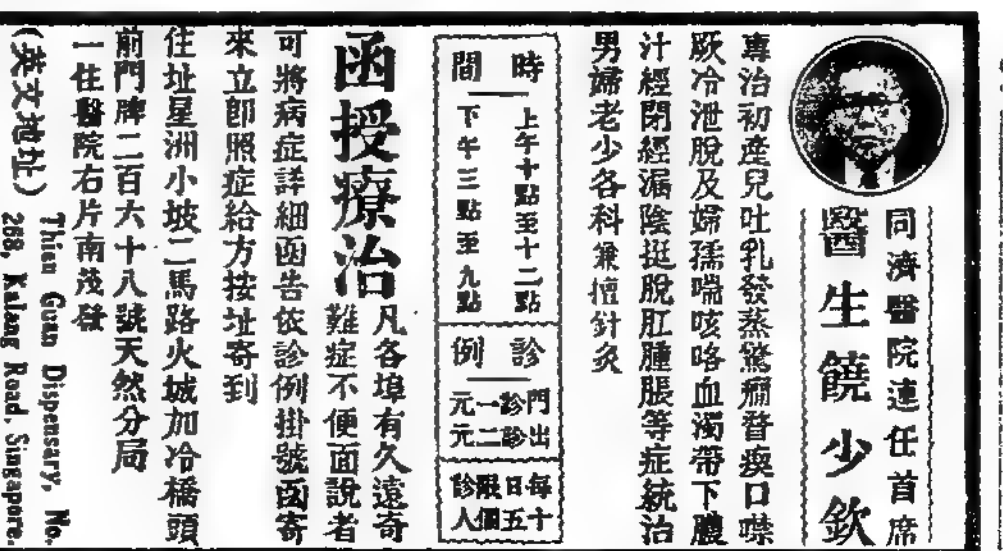 同濟醫院連任首席
醫生饒少欽
專治初產兒吐乳發蒸驚癎瞀瘓口噤
厥冷泄脫及婦孺喘咳咯血濁帶下膿
汁經閉經漏陰挺脫肛腫脹等症統治
男婦老少各科兼擅針灸
時間
上午十點至十二點
下午三點至九點
診例
門診一元
出診二元
每日限診
十五個人
函授療治
凡各埠有久遠寄
難症不便面說者
可將病症詳細函告依診例掛號函寄
來立卽照症給方按址寄到
住址星洲小坡二馬路火城加冷橋頭
前門牌二百六十八號天然分局
一住醫院右片南茂發
(英文地址)
Thien Guan Dispensary, No.
268, Kalang Road, Singapore.